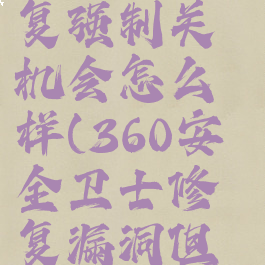 复强制关
机会怎么
样(360安
全卫士修
复漏洞